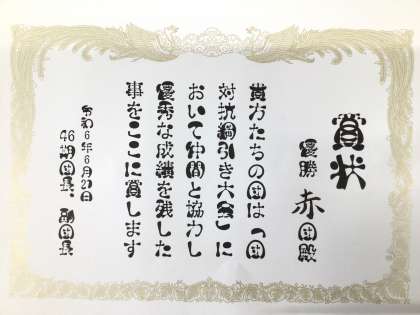 賞状
優勝 赤団殿
貴方たちの団は「団
対抗綱引き大会」に
おいて仲間と協力し
優秀な成績を残した
事をここに賞します
令和6年6月21日
46期団長、副団長